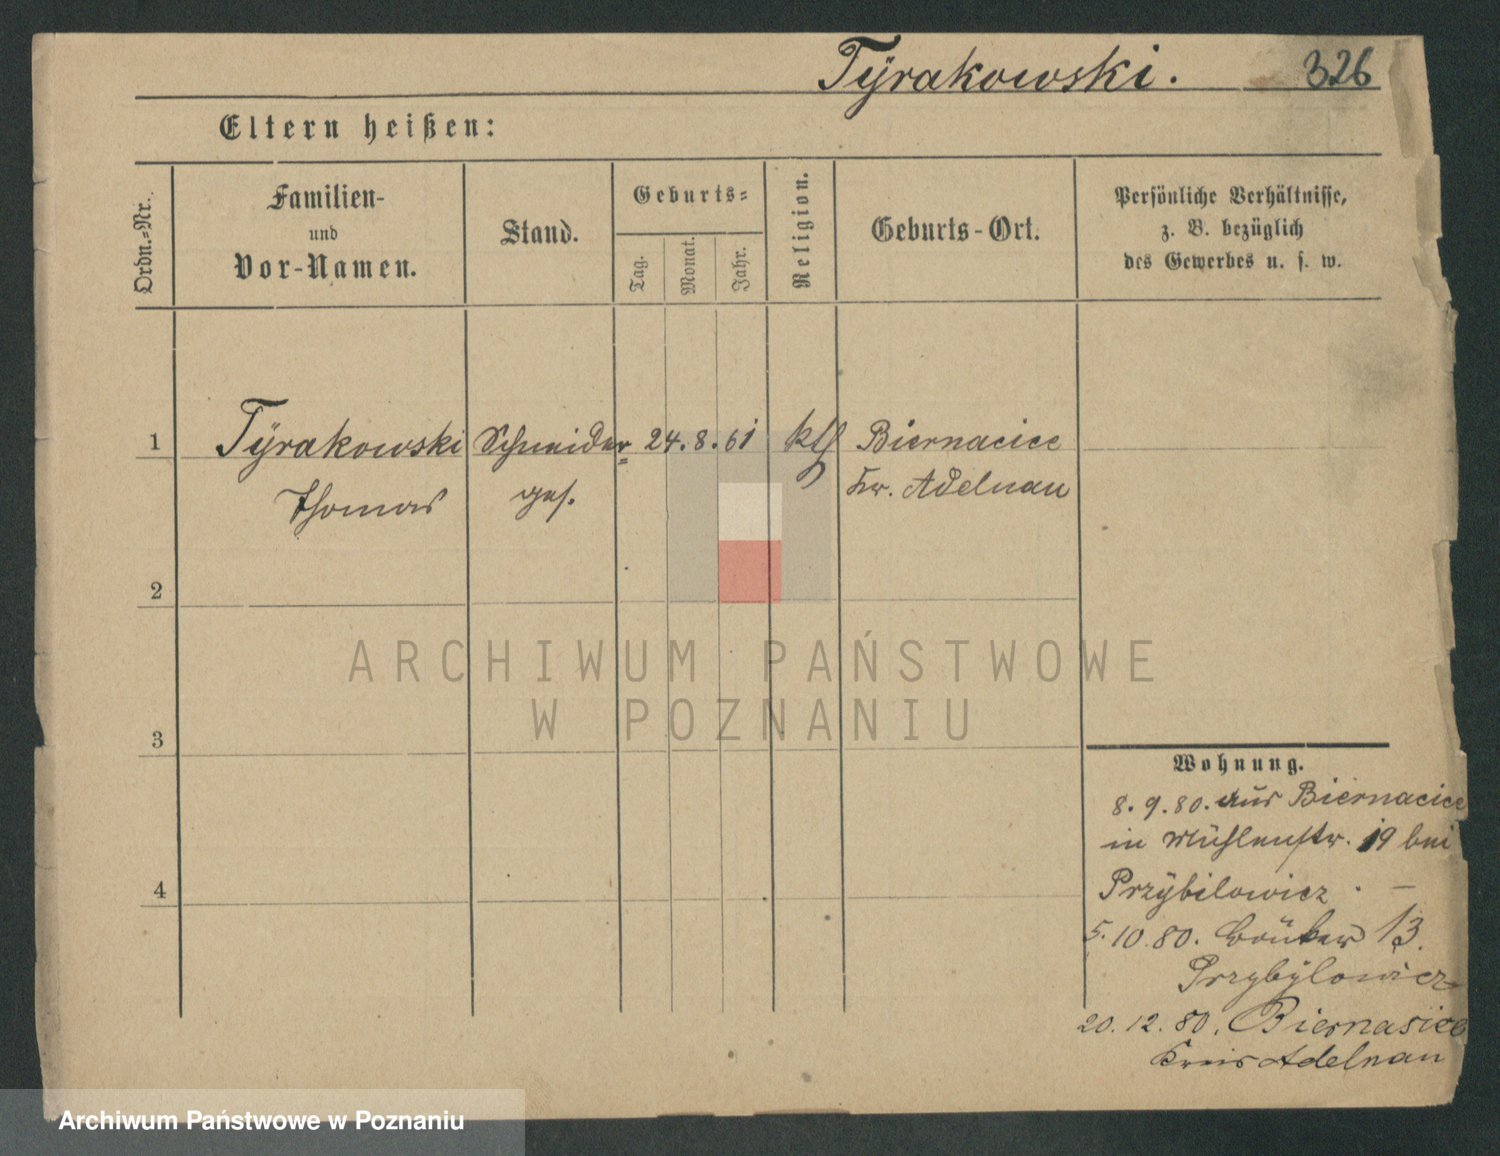 Tÿrakowski. 326
Eltern heißen:
Ordn.-Nr.
Familien-
und
Vor-Namen.
Stand.
Geburts-
Tag.
Monat.
Jahr.
Religion.
Geburts-Ort.
Persönliche Verhältnisse,
z. B. bezüglich
des Gewerbes u. s. w.
1 Tÿrakowski Schneider 24. 8. 61 kth Biernacice
Thomas ges. Kr. Adelnau
2
3
4
ARCHIWUM PAŃSTWOWE
W POZNANIU
Wohnung.
8. 9. 80. aus Biernacice
in Mühlenstr. 19 bei
Przÿbilowicz. —
5. 10. 80. 13.
Przybÿlowicz
20. 12. 80. Biernasice
Kreis Adelnau
Archiwum Państwowe w Poznaniu